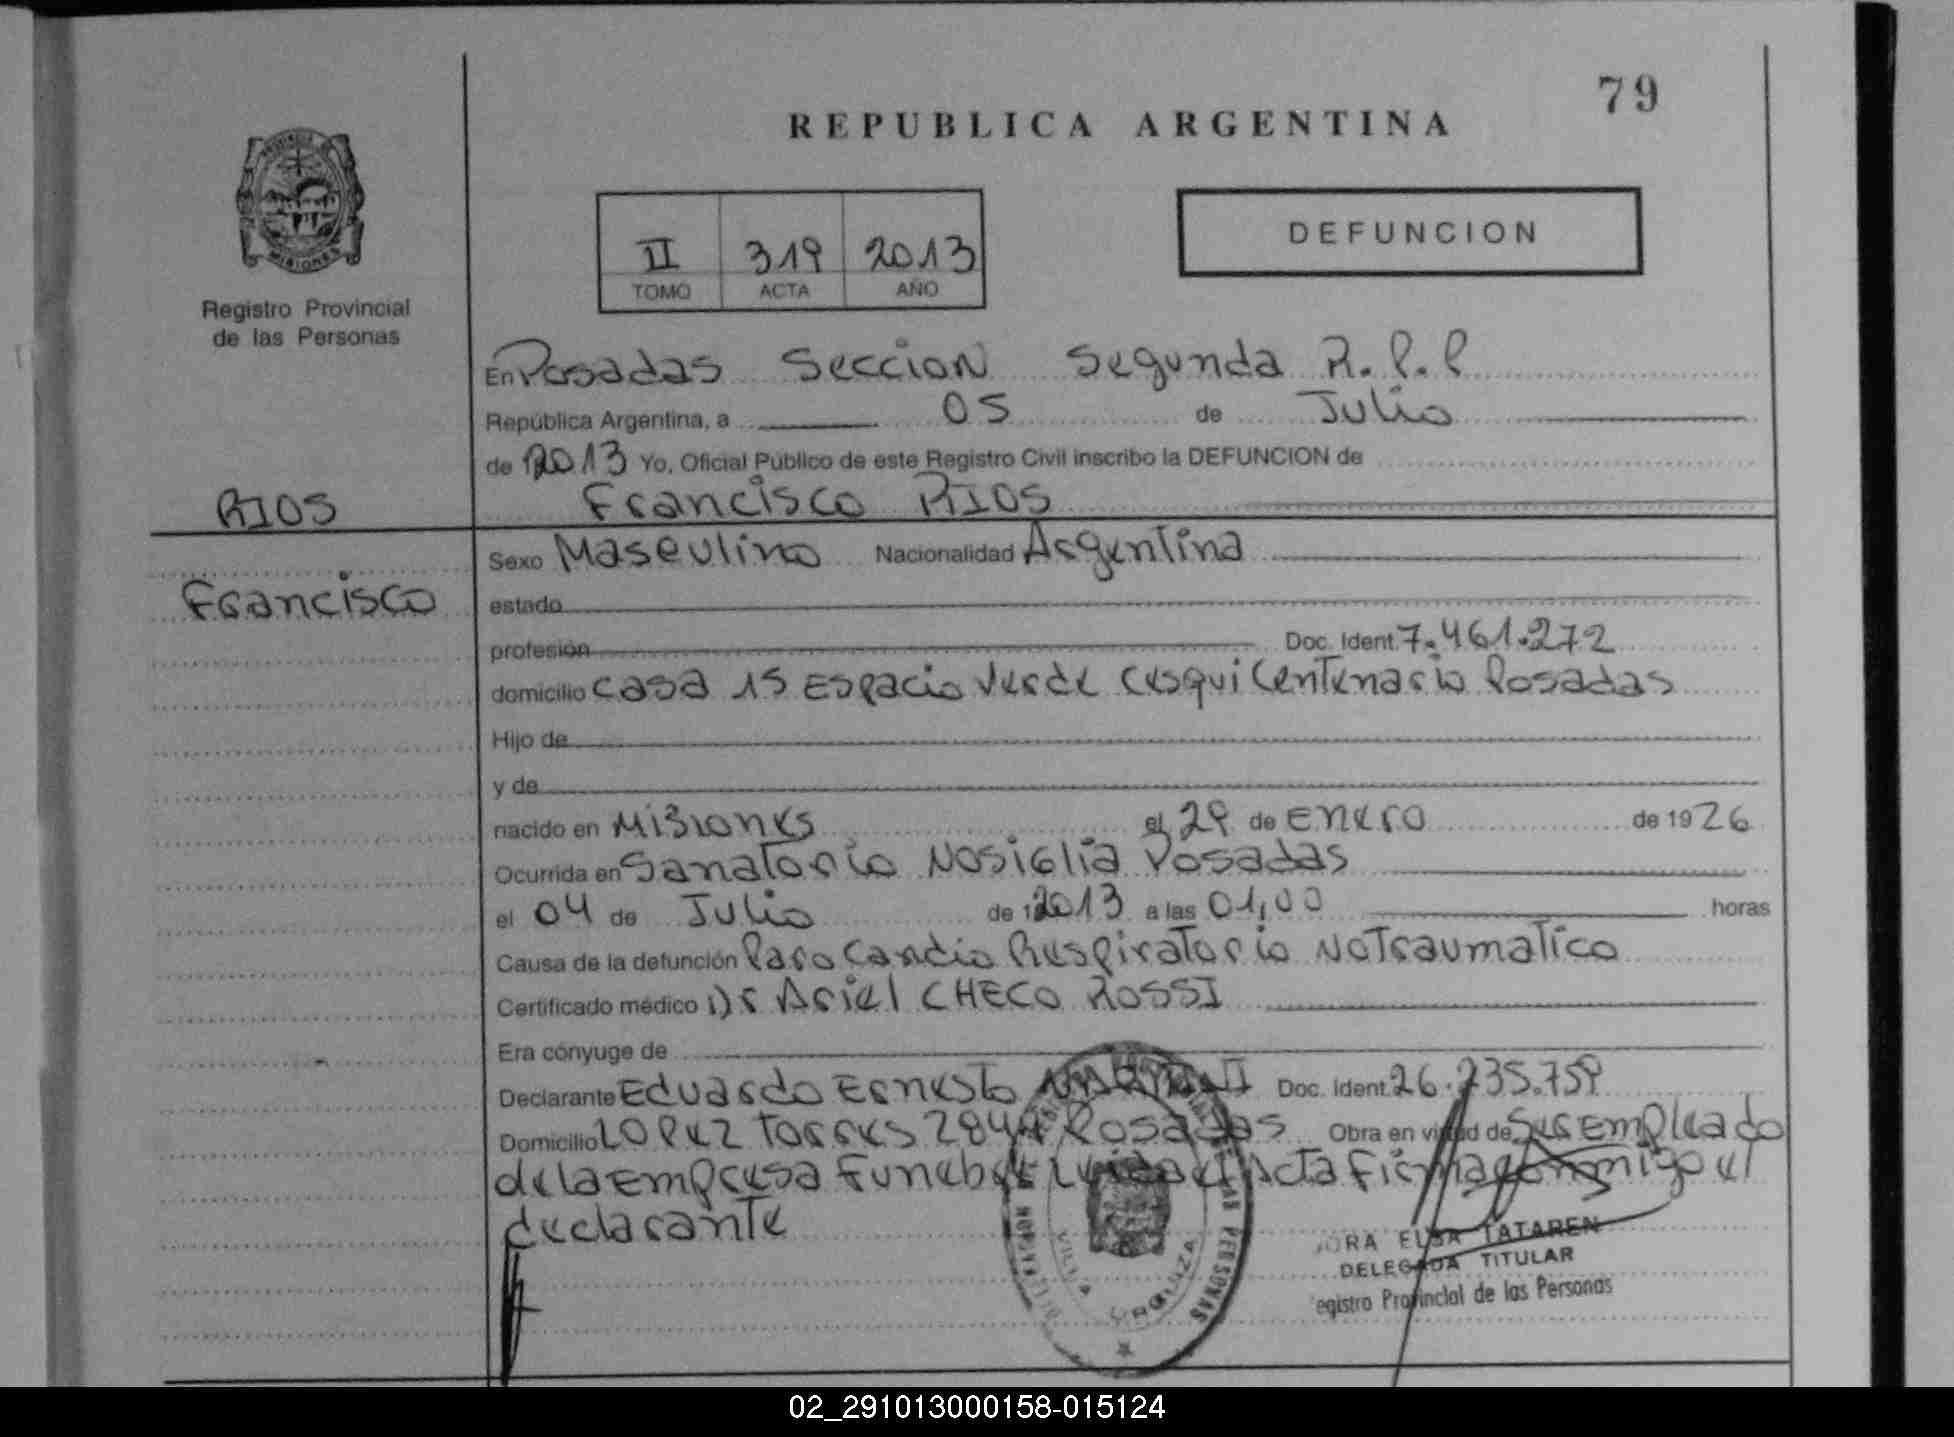 79
REPUBLICA ARGENTINA
MISIONES
Registro Provincial
de las Personas
DEFUNCION
II 319 2013
TOMO ACTA AÑO
En Posadas Seccion Segunda R.P.P
República Argentina, a 05 de Julio
de 2013 Yo, Oficial Público de este Registro Civil inscribo la DEFUNCION de
RIOS
Francisco RIOS
Sexo Masculino Nacionalidad Argentina
Francisco
estado
profesión Doc. Ident. 7.461.272
domicilio Casa 15 Espacio Verde Cesquicentenario Posadas
Hijo de
y de
nacido en Misiones el 29 de Enero de 1926
Ocurrida en Sanatorio Nosiglia Posadas
el 04 de Julio de 2013 a las 01,00 horas
Causa de la defunción Paro Cardio Respiratorio No Traumatico
Certificado médico Dr Ariel CHECO ROSSI
Era cónyuge de
Declarante Eduardo Ernesto Doc. Ident. 26.235.759
Domicilio Lopez Torres Posadas Obra en virtud de Ser Empleado
de la Empresa Funebre Leida el Acta Firma conmigo el
declarante
VILLA URQUIZA
DE LAS PERSONAS
ORA ELSA TATAREN
DELEGADA TITULAR
egistro Provincial de las Personas
02_291013000158-015124